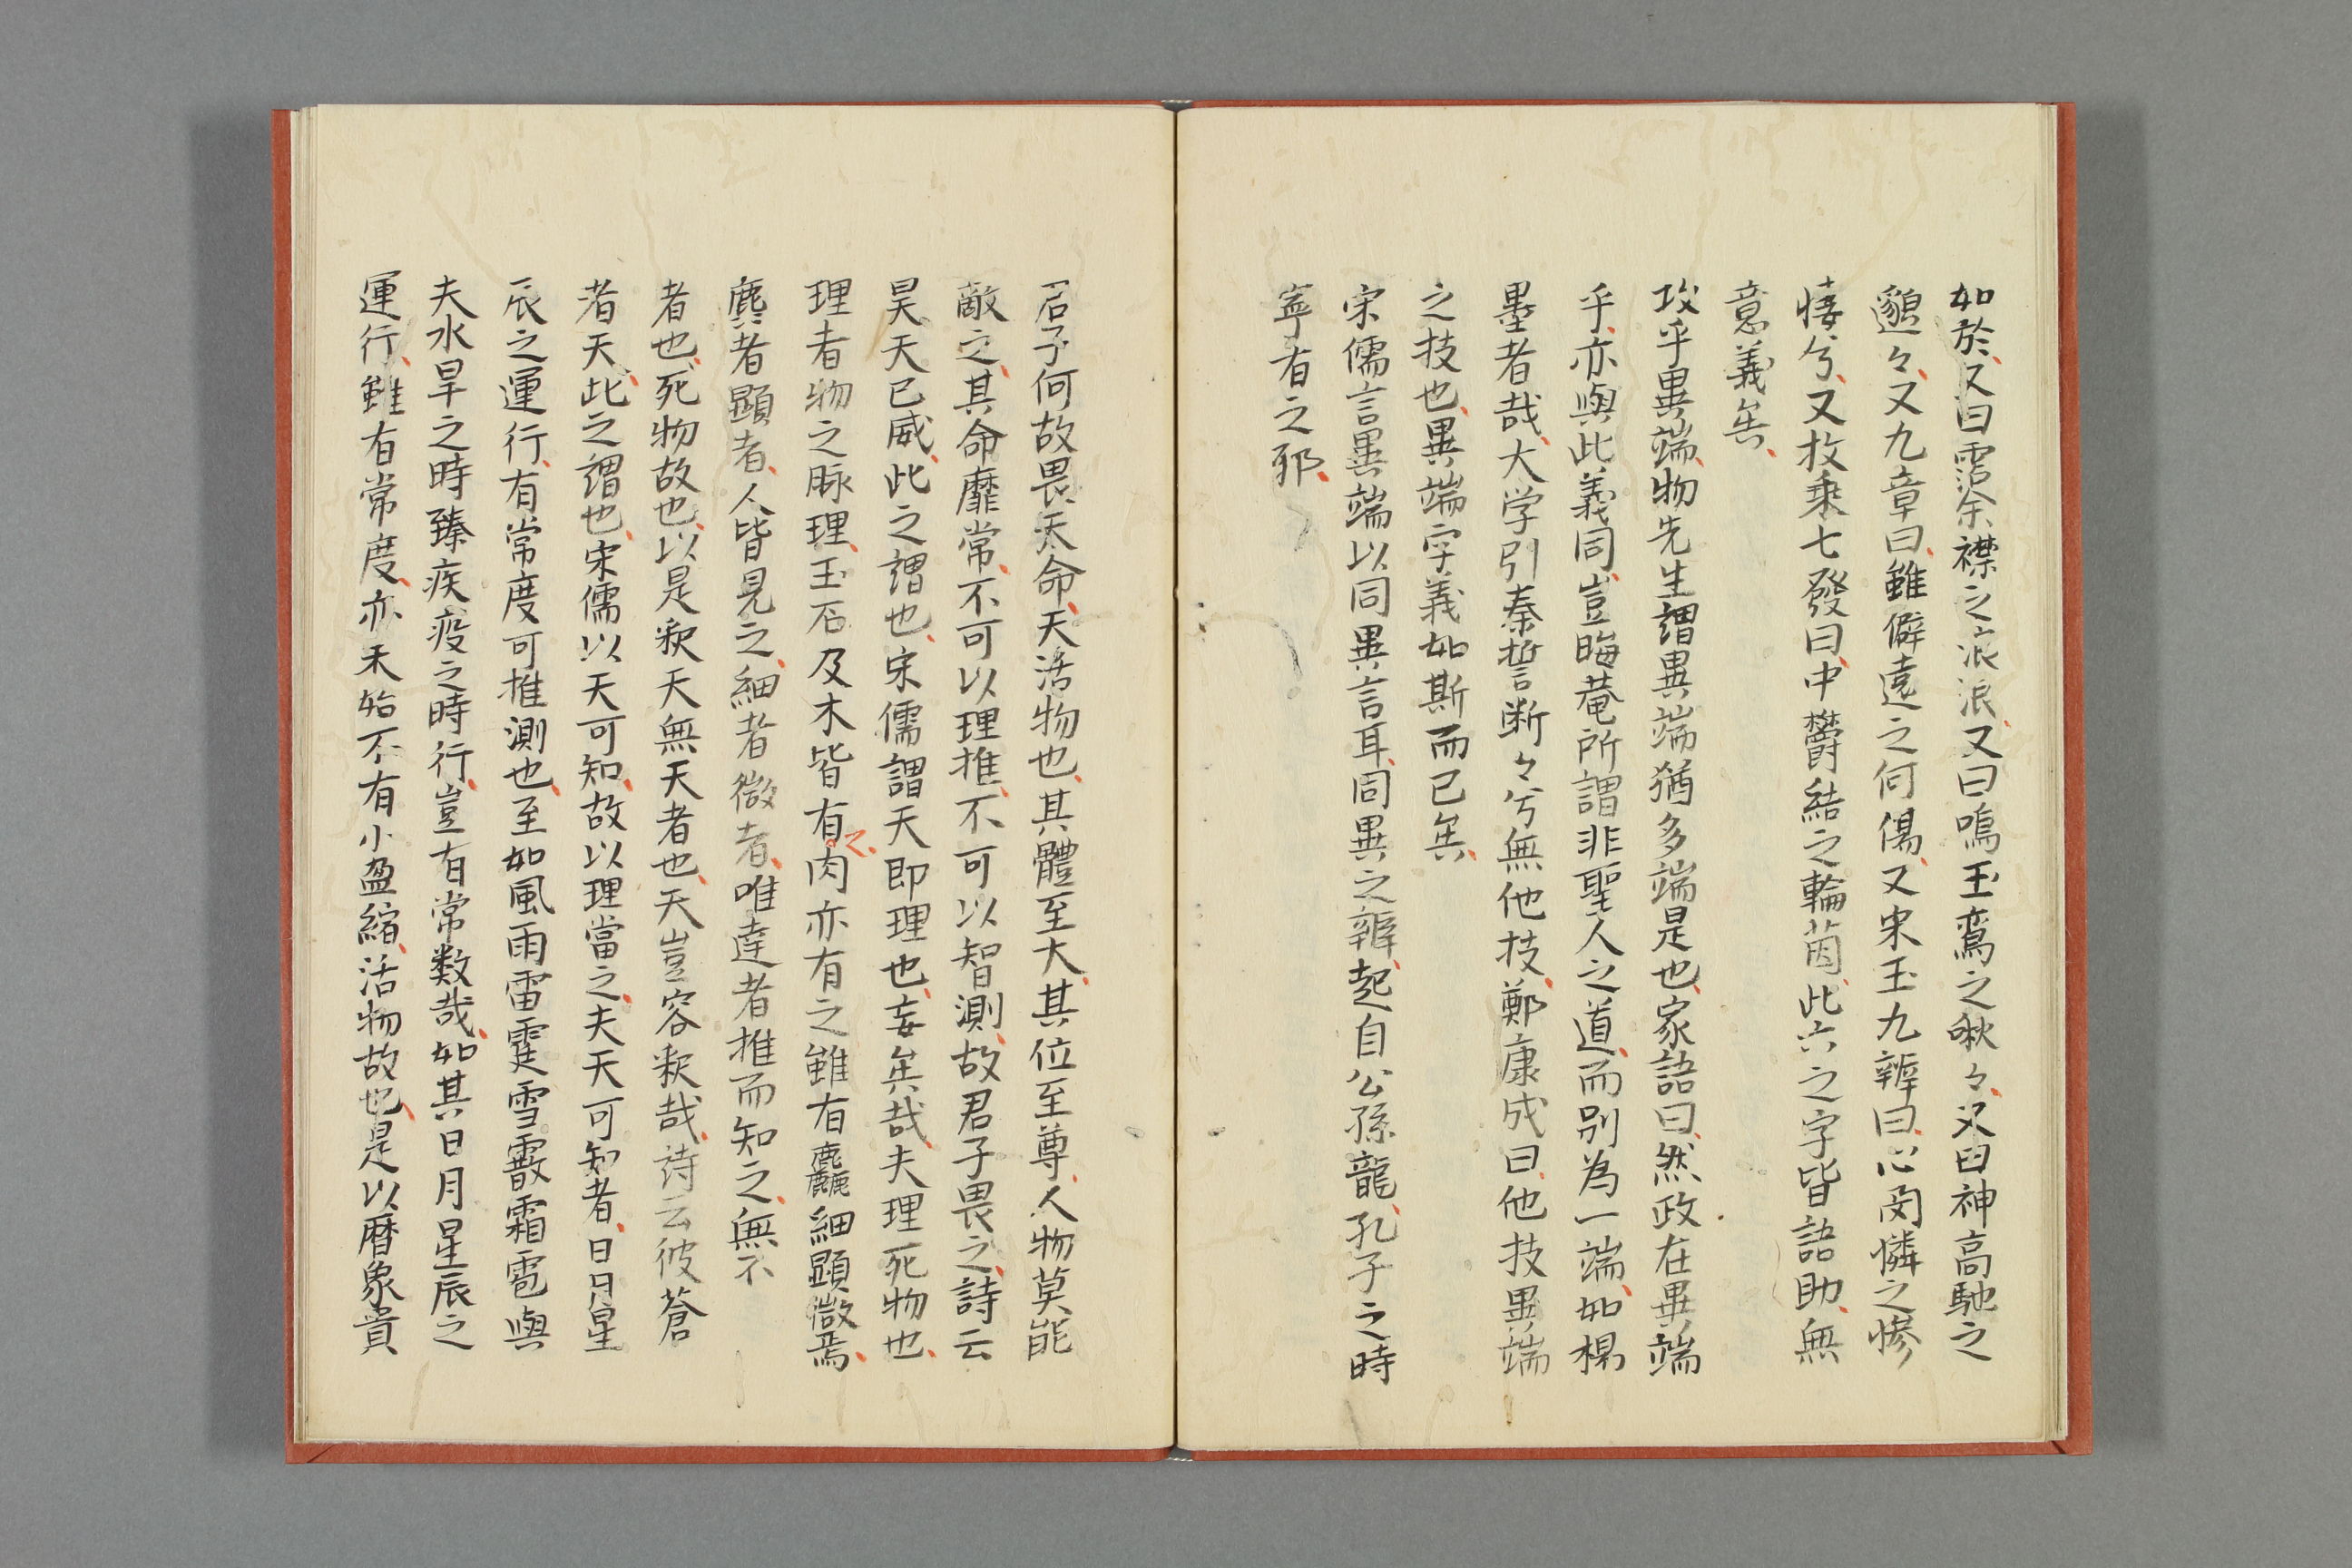 如於又曰霑余襟之浪浪又曰鳴玉鸞之啾々又曰神高馳之
邈々又九章曰雖僻遠之何傷又宋玉九辨曰心閔憐之慘
悽兮又枚乗七發曰中欝結之輪菌此六之字皆語助無
意義矣
攻乎異端物先生謂異端猶多端是也家語曰然政在異端
乎亦與此義同豈晦菴所謂非聖人之道而別為一端如楊
墨者哉大学引秦誓断々兮無他技鄭康成曰他技異端
之技也異端字義如斯而已矣
宋儒言異端以同異言耳同異之辨起自公孫龍孔子之時
寧有之邪
一君子何故畏天命天活物也其體至大其位至尊人物莫能
敵之其命靡常不可以理推不可以智測故君子畏之詩云
昊天已威此之謂也宋儒謂天即理也妄矣哉夫理死物也
理者物之脉理玉石及木皆有之肉亦有之雖有麤細顕微焉
麤者顕者人皆見之細者微者唯達者推而知之無不
者也死物故也以是釈天無天者也天豈容釈哉詩云彼蒼
者天此之謂也宋儒以天可知故以理當之夫天可知者日月星
辰之運行有常度可推測也至如風雨雷霆雪霰霜雹與
夫水旱之時臻疾疫之時行豈有常数哉如其日月星辰之
運行雖有常度亦未始不有小盈縮活物故也是以暦象貴